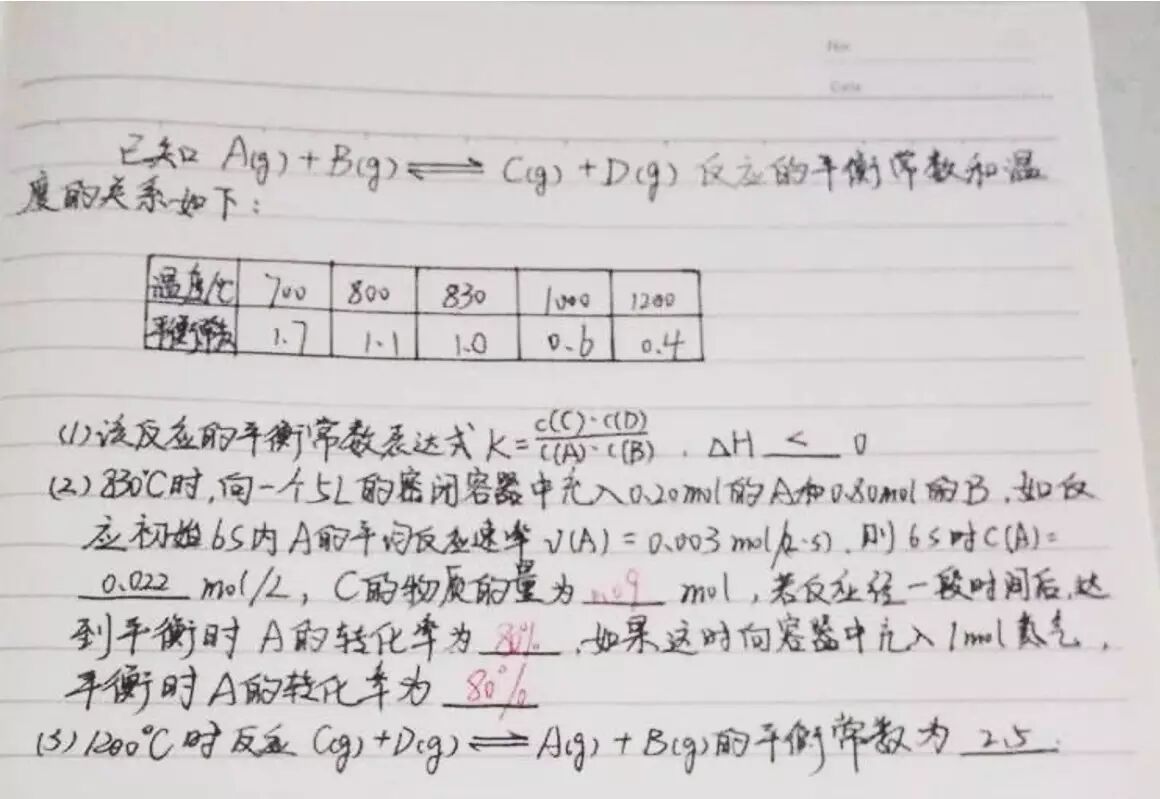 No
Date
已知 A(g) + B(g) ⇌ C(g) + D(g) 反应的平衡常数和温
度的关系如下：
温度/℃ 700 800 830 1000 1200
平衡常数 1.7 1.1 1.0 0.6 0.4
(1) 该反应的平衡常数表达式 K = c(C)·c(D) / c(A)·c(B) , ΔH < 0
(2) 830℃时,向一个5L的密闭容器中充入0.20mol的A和0.80mol的B,如反
应初始6S内A的平均反应速率 v(A) = 0.003 mol/(L·s),则6s时C(A) =
0.022 mol/L, C的物质的量为 0.09 mol,若反应经一段时间后,达
到平衡时A的转化率为 80% ,如果这时向容器中充入1mol氦气,
平衡时A的转化率为 80%
(3) 1200℃时反应 C(g) + D(g) ⇌ A(g) + B(g)的平衡常数为 2.5.